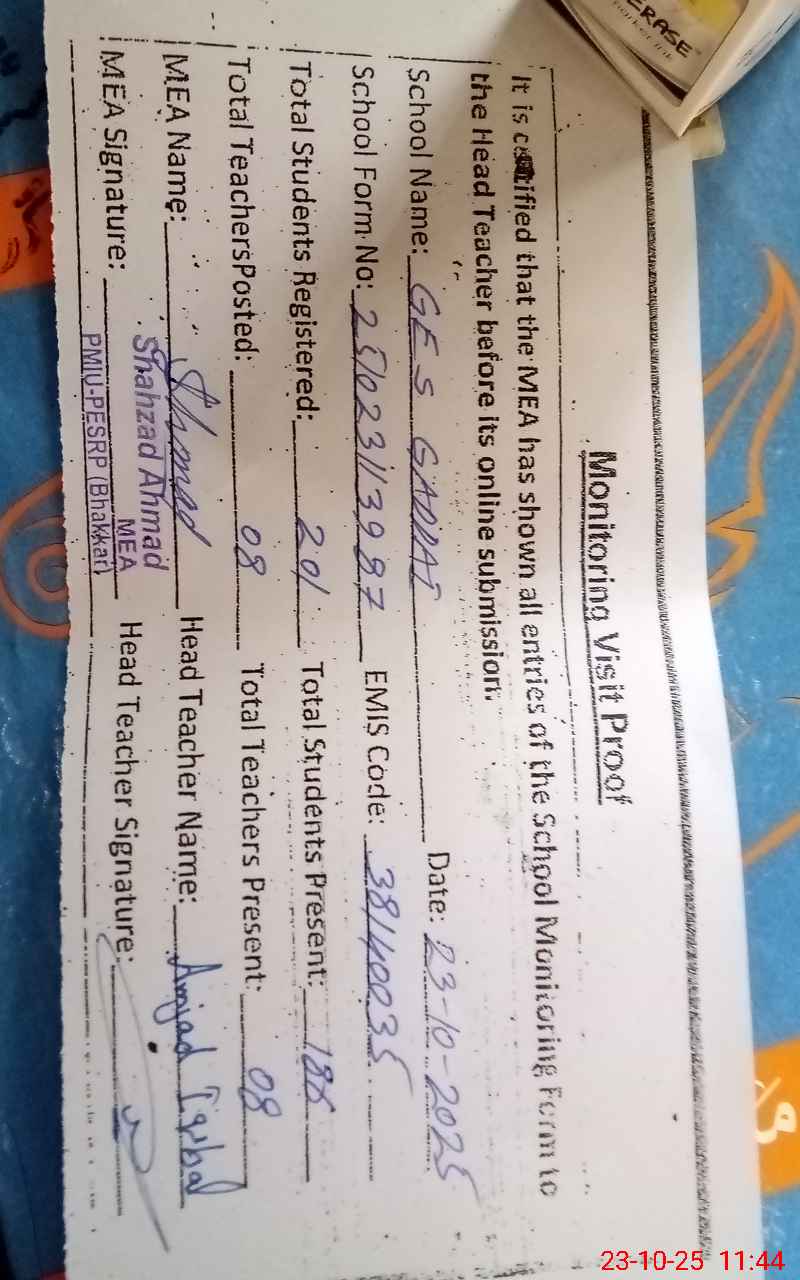 Monitoring Visit Proof
It is certified that the MEA has shown all entries of the School Monitoring Form to
the Head Teacher before its online submission.
School Name: GES GADDAI Date: 23-10-2025
School Form No: 251023113987 EMIS Code: 38140035
Total Students Registered: 201 Total Students Present: 188
Total TeachersPosted: 08 Total Teachers Present: 08
MEA Name: Ahmad Head Teacher Name: Amjad Iqbal
MEA Signature: Head Teacher Signature:
Shahzad Ahmad
MEA
PMIU-PESRP (Bhakkar)
ERASE
23-10-25 11:44